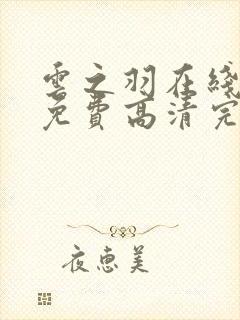 雲之羽在綫
免費高清完
夜恵美